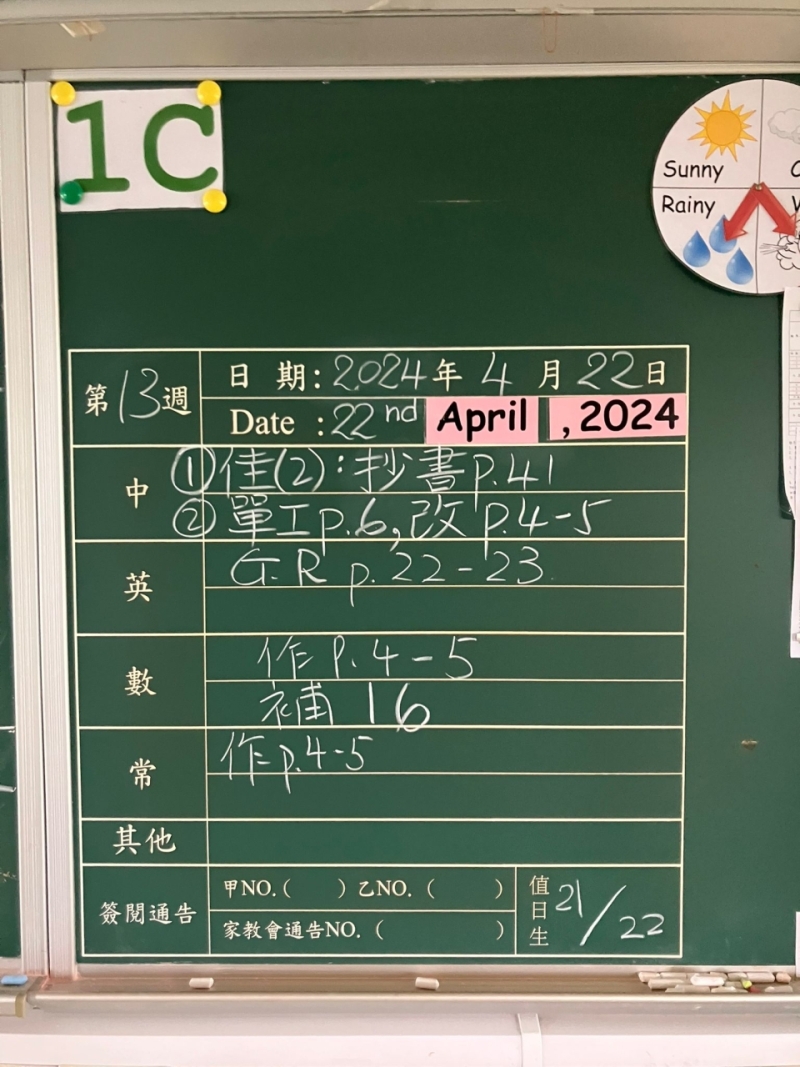 1C
Sunny
Rainy
第13週
日期: 2024年 4 月 22日
Date : 22nd April , 2024
中
①佳(2):抄書p.41
②單工p.6,改 p.4-5
英
G.R p. 22-23
數
作 P. 4-5
補 16
常
作p.4-5
其他
簽閱通告
甲NO.( ) 乙NO. ( )
家教會通告NO. ( )
值日生 21/22